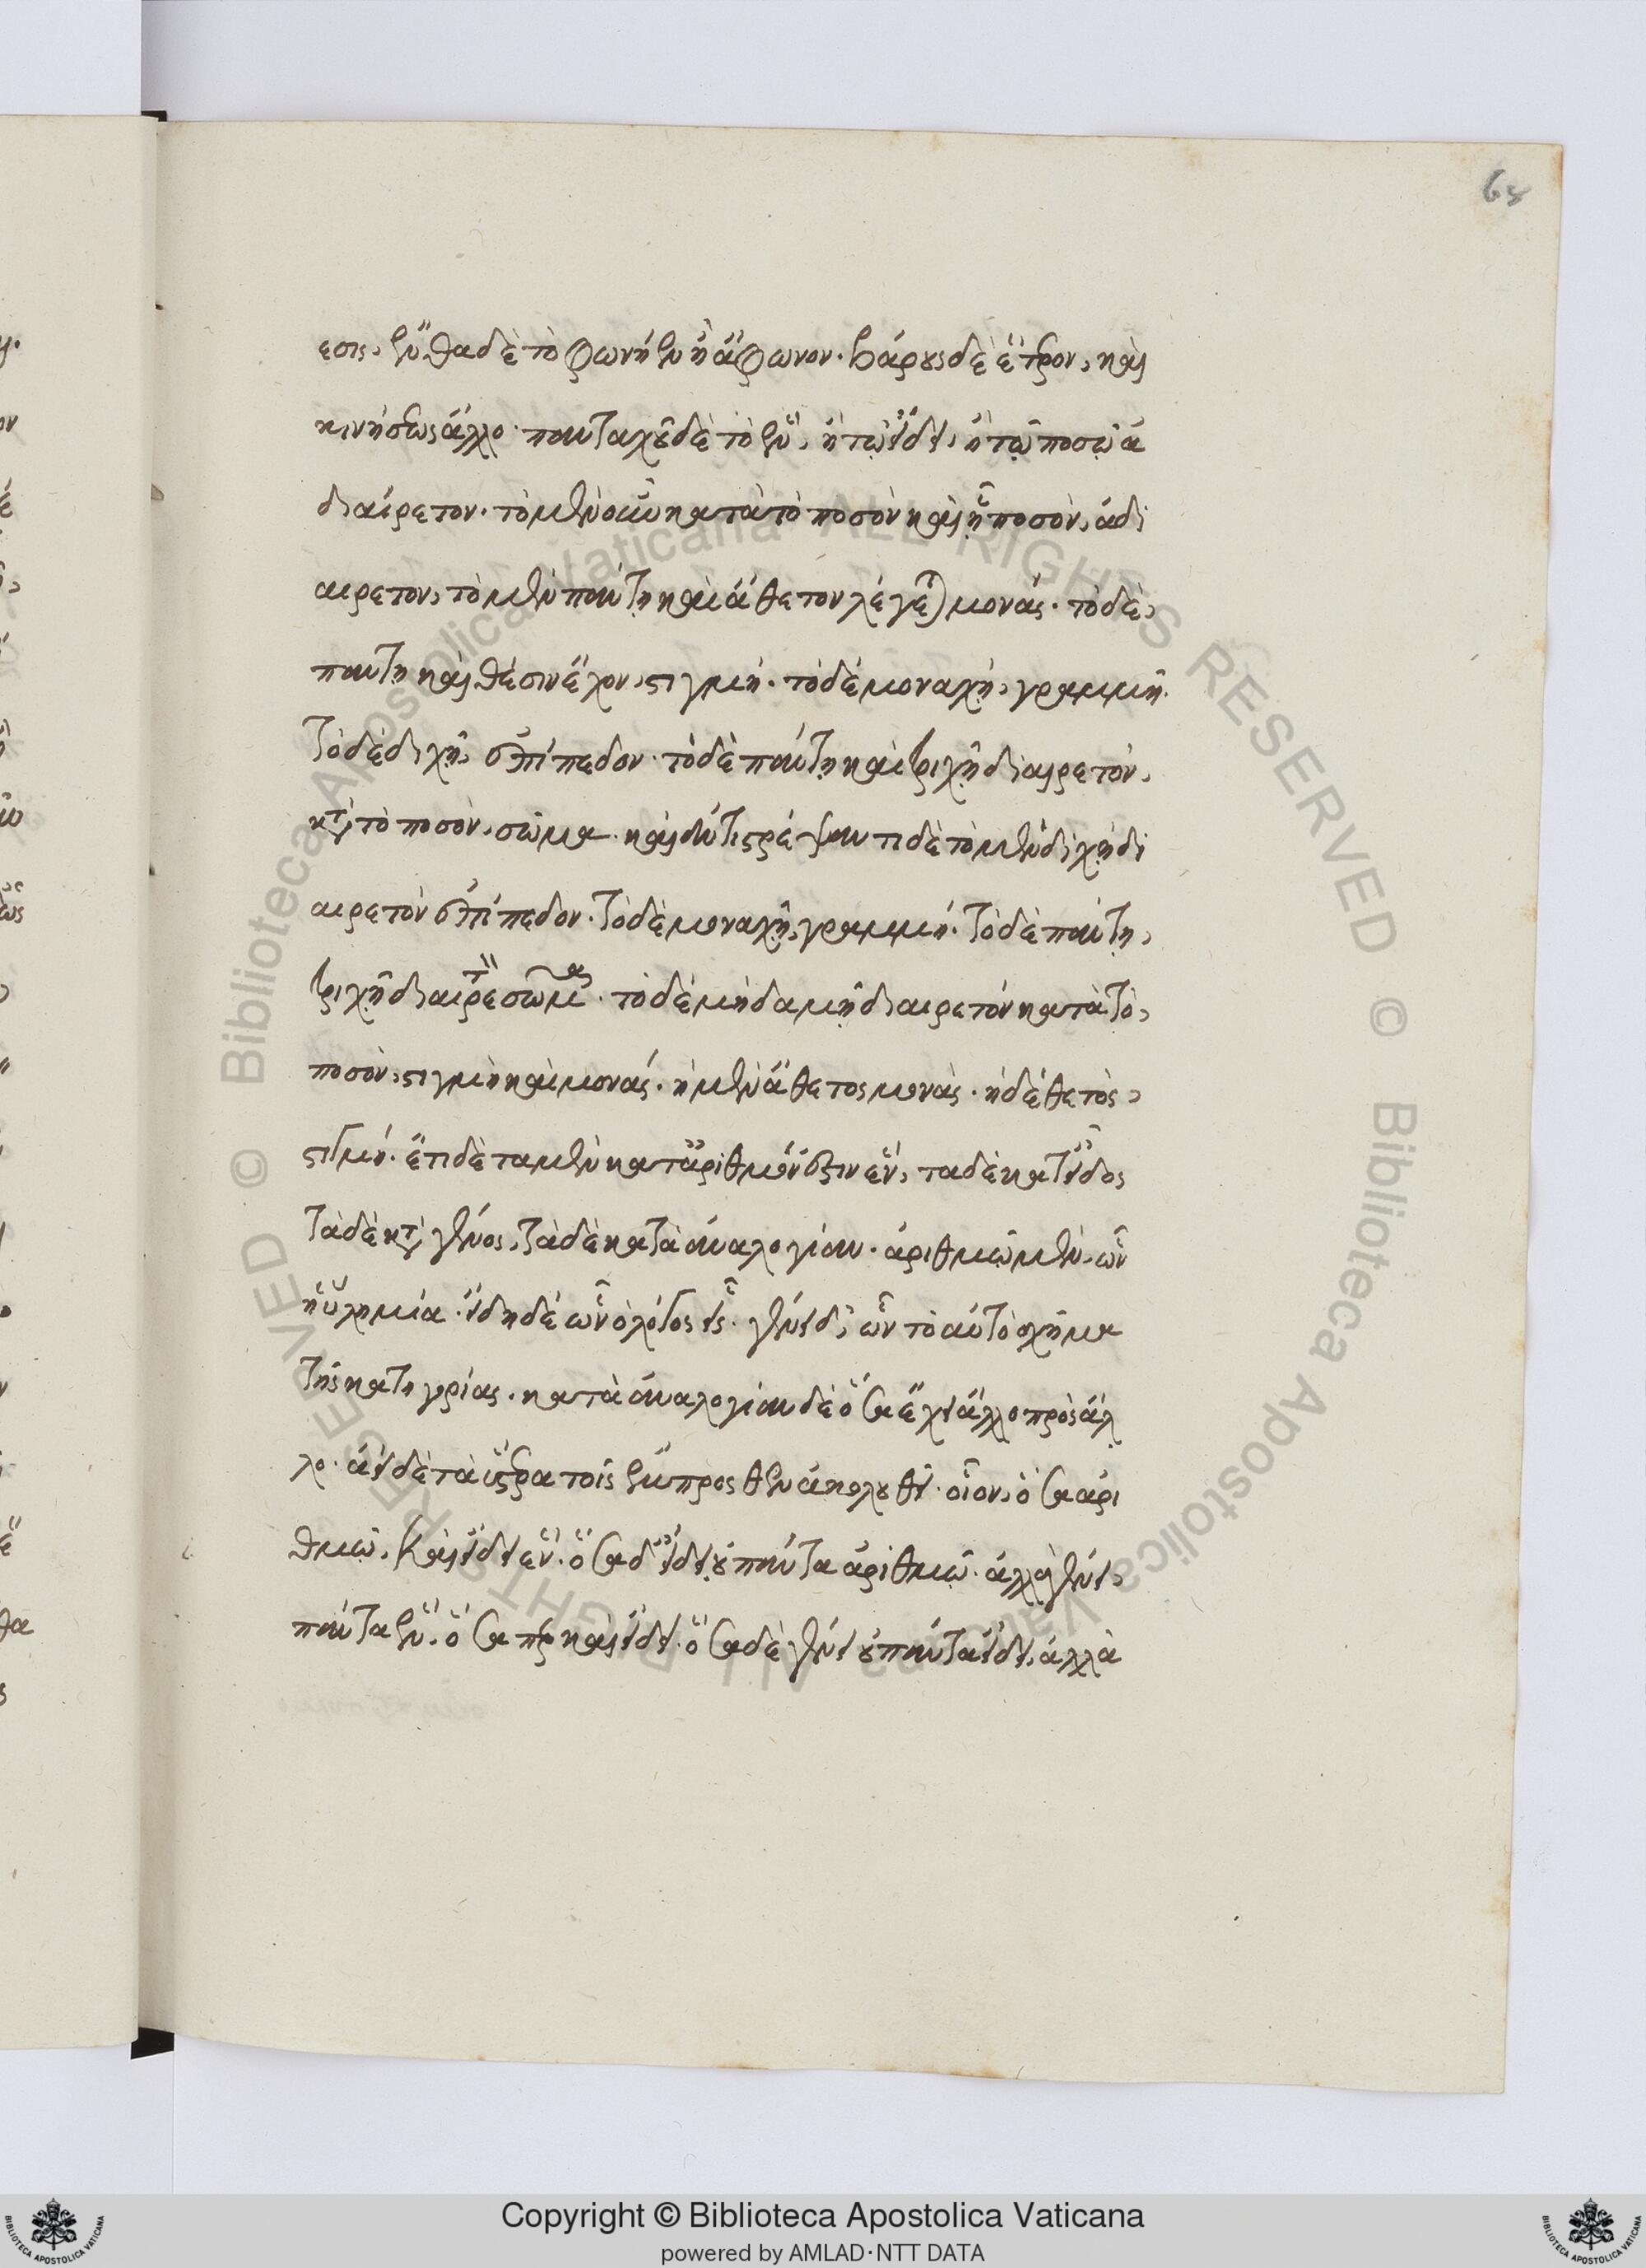 68
εσις, ἔνθα δὲ τὸ φωνῆεν ἢ ἄφωνον. βάρους δὲ ἕτερον, καὶ
κινήσεως ἄλλο. πανταχοῦ δὲ τὸ ἓν, ἢ τῷ εἴδει, ἢ τῷ ποσῷ ἀ
διαίρετον. τὸ μὲν οὖν κατὰ τὸ ποσὸν καὶ ᾗ ποσὸν, ἀδι
αιρετον, τὸ μὲν πάντῃ καὶ ἄθετον λέγεται μονάς. τὸ δὲ,
παντη καὶ θέσιν ἔχον, στιγμή. τὸ δὲ μοναχῇ, γραμμή.
Τὸ δὲ διχῇ, ἐπίπεδον. τὸ δὲ πάντῃ καὶ τριχῇ διαιρετόν,
κατὰ τὸ ποσόν, σῶμα. καὶ ἀντιστρέψαντι δὲ τὸ μὲν διχῇ δι
αιρετὸν ἐπίπεδον. Τὸ δὲ μοναχῇ, γραμμή. Τὸ δὲ πάντῃ,
τριχῇ διαιρετὸν σῶμα. τὸ δὲ μηδαμῇ διαιρετόν κατὰ τὸ,
ποσόν, στιγμὴ καὶ μονάς. ἡ μὲν ἄθετος μονάς. ἡ δὲ θετὸς,
στιγμή. ἔτι δὲ τα μὲν κατ' ἀριθμόν ἐστιν ἕν, τα δὲ κατ' εἶδος
Τὰ δὲ κατὰ γένος, Τὰ δὲ κατὰ ἀναλογίαν. ἀριθμῷ μὲν, ὧν
ἡ ὕλη μία. εἴδη δὲ ὧν ὁ λόγος εἷς. γένει δ', ὧν τὸ αὐτὸ σχῆμα
Τῆς κατηγορίας. κατὰ ἀναλογίαν δὲ ὅσα ἔχει ἄλλο πρὸς ἄλ
λο. ἀεὶ δὲ τὰ ὕστερα τοῖς ἔμπροσθεν ἀκολουθεῖ. οἷον, ὅσα ἀρι
θμῷ, Καὶ εἴδει ἕν. ὅσα δ' εἴδει, οὐ πάντα ἀριθμῷ. ἀλλὰ γένει,
πάντα ἓν. ὅσα περ καὶ εἴδει. ὅσα δὲ γένει οὐ πάντα εἴδει, ἀλλὰ
Copyright © Biblioteca Apostolica Vaticana
powered by AMLAD·NTT DATA